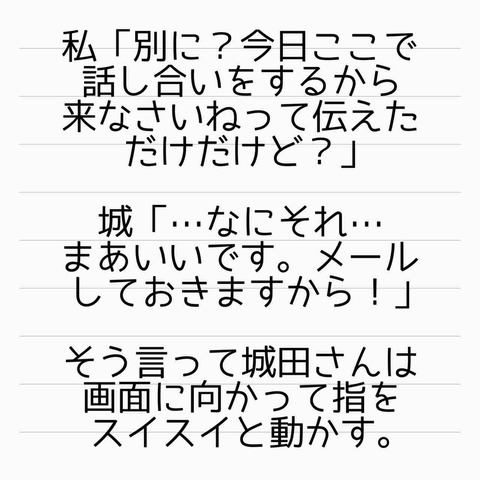 私「別に？今日ここで
話し合いをするから
来なさいねって伝えた
だけだけど？」
城「…なにそれ…
まあいいです。メール
しておきますから！」
そう言って城田さんは
画面に向かって指を
スイスイと動かす。